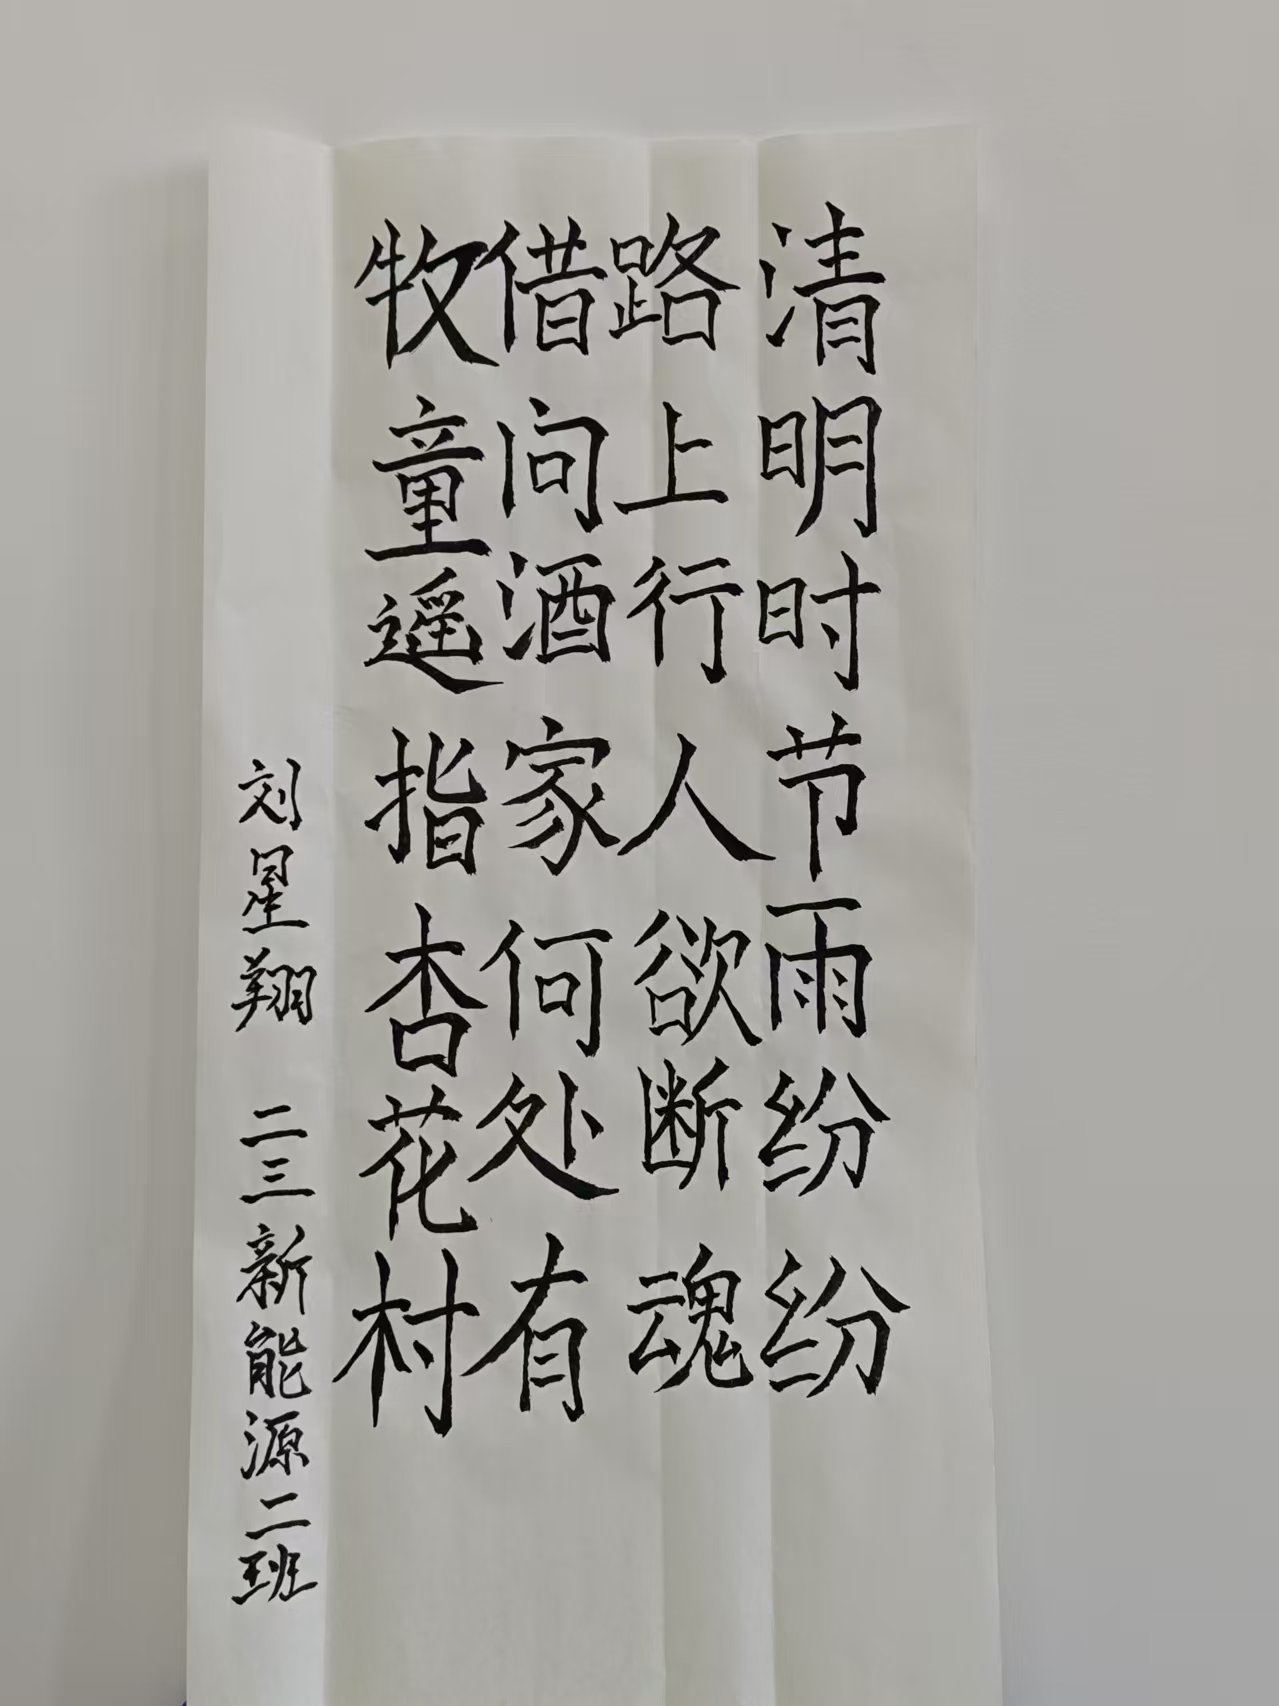 清明时节雨纷纷
路上行人欲断魂
借问酒家何处有
牧童遥指杏花村
刘星翔 二三新能源二班